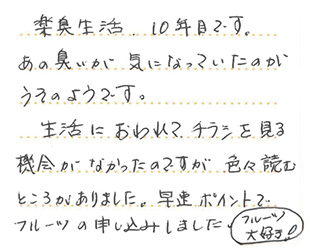 楽臭生活、10年目です。
あの臭いが気になっていたのが
うそのようです。
生活におわれてチラシを見る
機会がなかったのですが色々読む
ところがありました。早速ポイントで
フルーツの申し込みしました。
フルーツ
大好き!